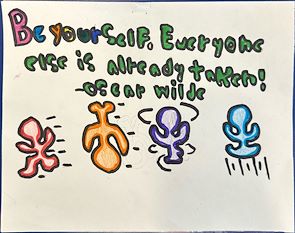 Be yourself. Everyone
else is already taken!
-oscar wilde